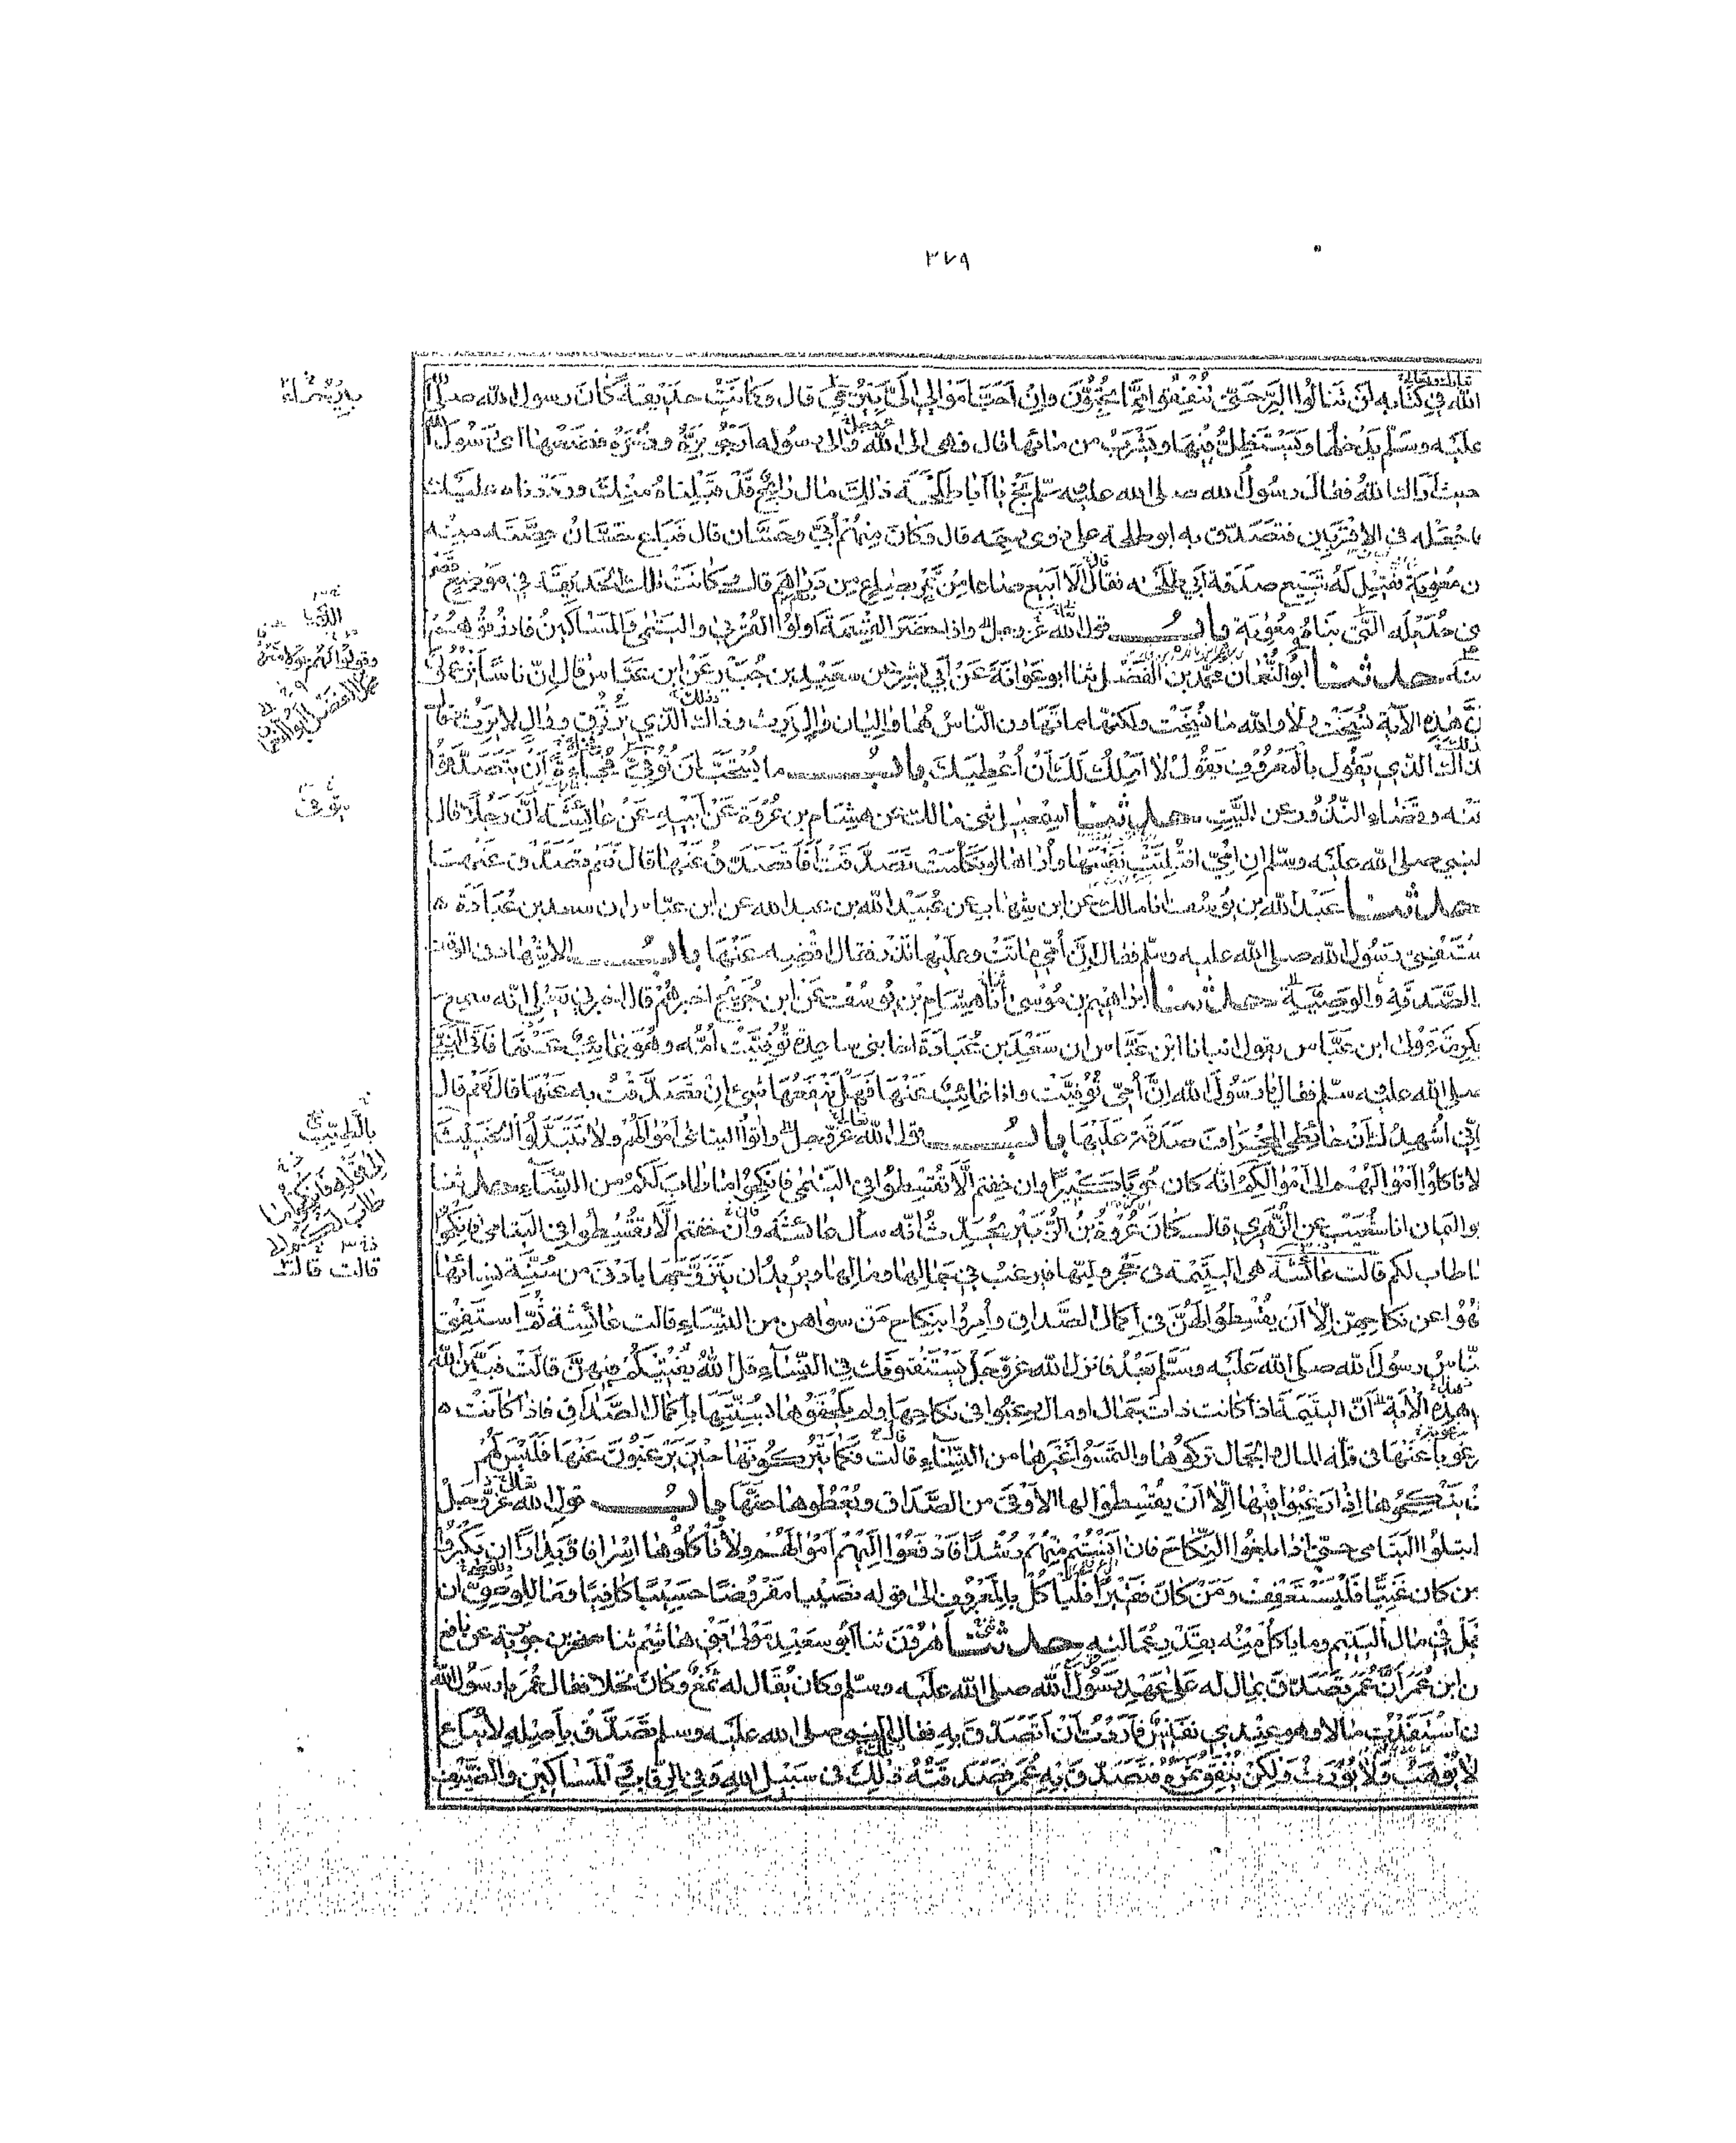 ٣٧٩
الله في كتابه لن تنالوا البر حتى تنفقوا مما تحبون وإن أحب أموالي إلي بيرحى قال وكانت حديقة كان رسول الله صلى الله
عليه وسلم يدخلها ويستظل فيها ويشرب من مائها قال فهي إلى الله وإلى رسوله أرجو بره وذخره فضعها أي رسول الله
حيث أراك الله فقال رسول الله صلى الله عليه وسلم بخ يا أبا طلحة ذلك مال رابح قد قبلناه منك ورددناه عليك
فاجعله في الأقربين فتصدق به أبو طلحة على ذوي رحمه قال وكان منهم أبي وحسان قال فباع حسان حصته منه
من معوية فقيل له تبيع صدقة أبي طلحة فقال ألا أبيع صاعا من تمر بصاع من دراهم قال وكانت تلك الحديقة في موضع قصر
بني حديلة الذي بناه معوية باب قول الله عز وجل وإذا حضر القسمة أولوا القربى واليتمى والمساكين فارزقوهم
منه حدثنا أبو النعمان محمد بن الفضل ثنا أبو عوانة عن أبي بشر عن سعيد بن جبير عن ابن عباس قال إن ناسا يزعمون
أن هذه الآية نسخت ولا والله ما نسخت ولكنها مما تهاون الناس هما واليان وال يرث وذاك الذي يرزق ووال لا يرث
فذاك الذي يقول بالمعروف يقول لا أملك لك أن أعطيك باب ما يستحب لمن توفي فجاءة أن يتصدقوا
عنه وقضاء النذور عن الميت حدثنا إسمعيل ثني مالك عن هشام بن عروة عن أبيه عن عائشة أن رجلا قال
للنبي صلى الله عليه وسلم إن أمي افتلتت نفسها وأراها لو تكلمت تصدقت أفأتصدق عنها قال نعم تصدق عنها
حدثنا عبد الله بن يوسف انا مالك عن ابن شهاب عن عبيد الله بن عبد الله عن ابن عباس ان سعد بن عبادة
استفتى رسول الله صلى الله عليه وسلم فقال إن أمي ماتت وعليها نذر فقال اقضه عنها باب الإشهاد في الوقف
والصدقة والوصية حدثنا إبراهيم بن موسى أنا هشام بن يوسف عن ابن جريج أخبرهم قال أخبرني يعلى انه سمع
عكرمة مولى ابن عباس يقول انبانا ابن عباس ان سعد بن عبادة اخا بني ساعدة توفيت أمه وهو غائب عنها فأتى النبي
صلى الله عليه وسلم فقال يا رسول الله إن أمي توفيت وانا غائب عنها فهل ينفعها شيء إن تصدقت به عنها قال نعم قال
فإني أشهدك أن حائطي المخراف صدقة عليها باب قول الله عز وجل وآتوا اليتامى أموالهم ولا تتبدلوا الخبيث
ولا تأكلوا أموالهم إلى أموالكم إنه كان حوبا كبيرا وان خفتم ألا تقسطوا في اليتمى فانكحوا ما طاب لكم من النساء حدثنا
أبو اليمان انا شعيب عن الزهري قال كان عروة بن الزبير يحدث أنه سأل عائشة وإن خفتم ألا تقسطوا في اليتامى فانكحوا
ما طاب لكم قالت عائشة هي اليتيمة في حجر وليها فيرغب في جمالها ومالها ويريد ان يتزوجها بأدنى من سنة نسائها
فنهوا عن نكاحهن إلا أن يقسطوا لهن في إكمال الصداق وأمروا بنكاح من سواهن من النساء قالت عائشة ثم استفتى
الناس رسول الله صلى الله عليه وسلم بعد فانزل الله عز وجل يستفتونك في النساء قل الله يفتيكم فيهن قالت فبين الله
في هذه الآية أن اليتيمة اذا كانت ذات جمال او مال رغبوا في نكاحها ولم يلحقوها بسنتها بإكمال الصداق فاذا كانت
مرغوبا عنها في قلة المال والجمال تركوها والتمسوا غيرها من النساء قالت فكما يتركونها حين يرغبون عنها فليس لهم
أن ينكحوها إذا رغبوا فيها إلا أن يقسطوا لها الأوفى من الصداق ويعطوها حقها باب قول الله عز وجل
وابتلوا اليتامى حتى إذا بلغوا النكاح فان آنستم منهم رشدا فادفعوا إليهم أموالهم ولا تأكلوها إسرافا وبدارا ان يكبروا
ومن كان غنيا فليستعفف ومن كان فقيرا فليأكل بالمعروف إلى قوله نصيبا مفروضا حسيبا كافيا وما للوصي ان
يعمل في مال اليتيم وما يأكل منه بقدر عمالته حدثنا هرون ثنا أبو سعيد مولى بني هاشم ثنا صخر بن جويرية عن نافع
عن ابن عمر أن عمر تصدق بمال له على عهد رسول الله صلى الله عليه وسلم وكان يقال له ثمغ وكان نخلا فقال عمر يا رسول الله
إني استفدت مالا وهو عندي نفيس فأردت أن أتصدق به فقال النبي صلى الله عليه وسلم تصدق بأصله لا يباع
ولا يوهب ولا يورث ولكن ينفق ثمره فتصدق به عمر فصدقته ذلك في سبيل الله وفي الرقاب والمساكين والضيف
بالطيب
إلى قوله فانكحوا ما
طاب لكم
قالت قالت